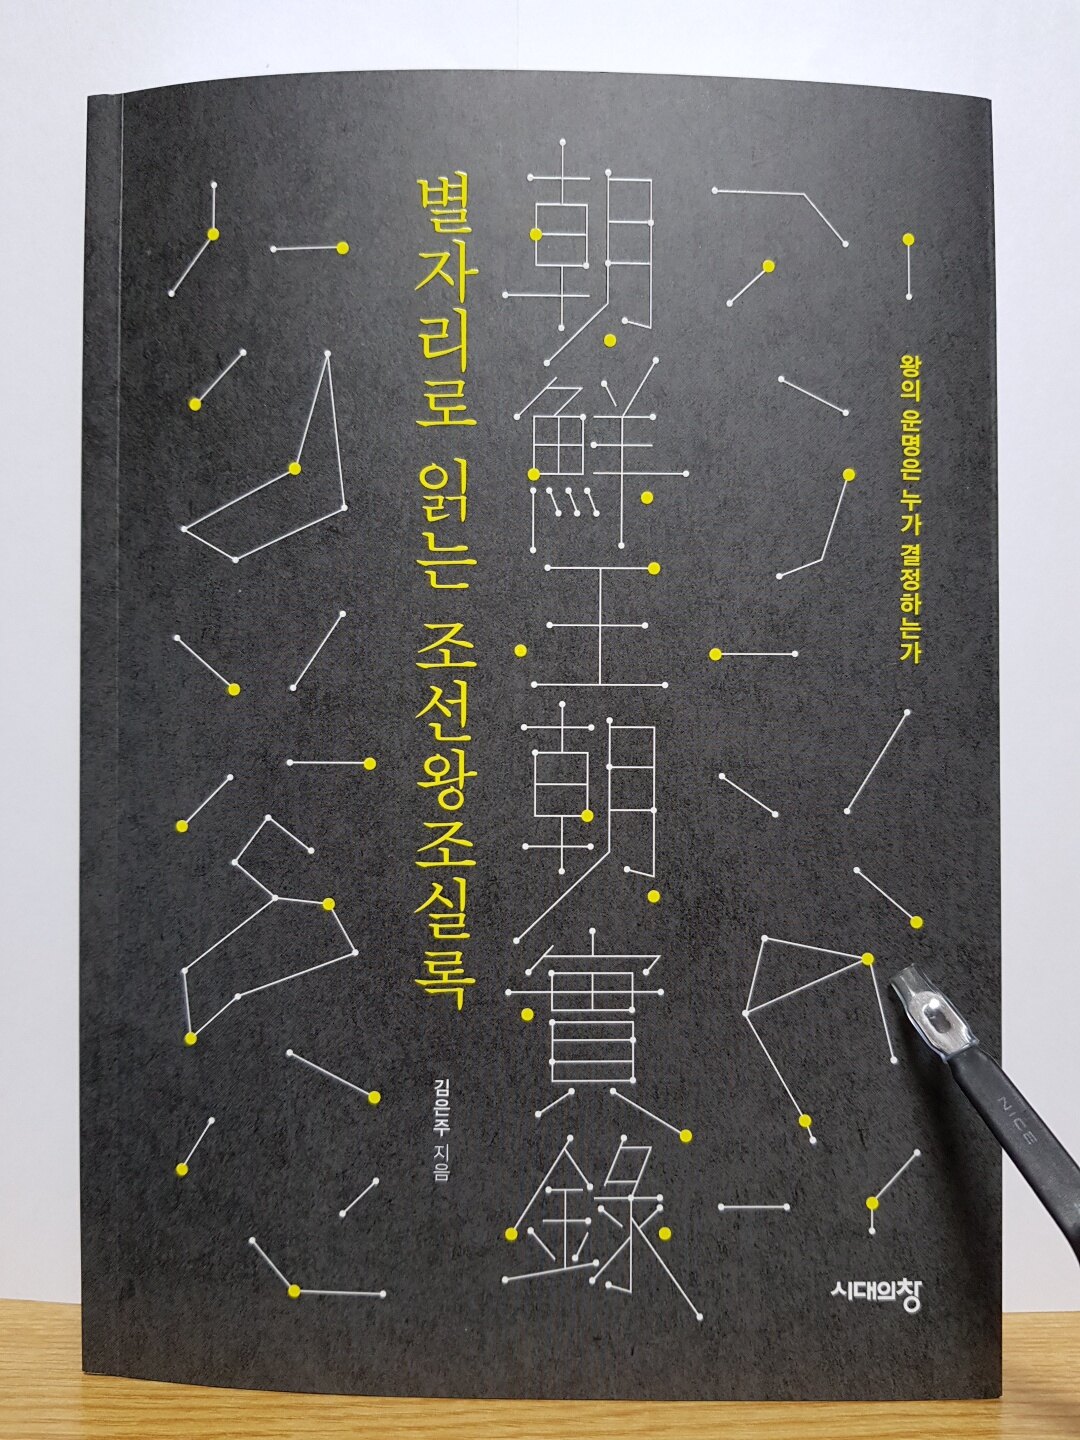 왕의 운명은 누가 결정하는가
朝鮮王朝實錄
별자리로 읽는 조선왕조실록
김은주 지음
시대의창
NICE